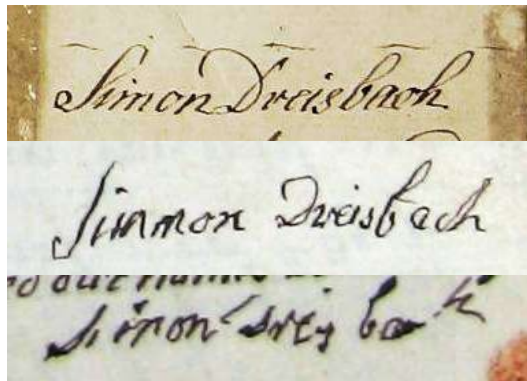 Simon Dreisbach
Simmon Dreisbach
Simon Dreÿ bach